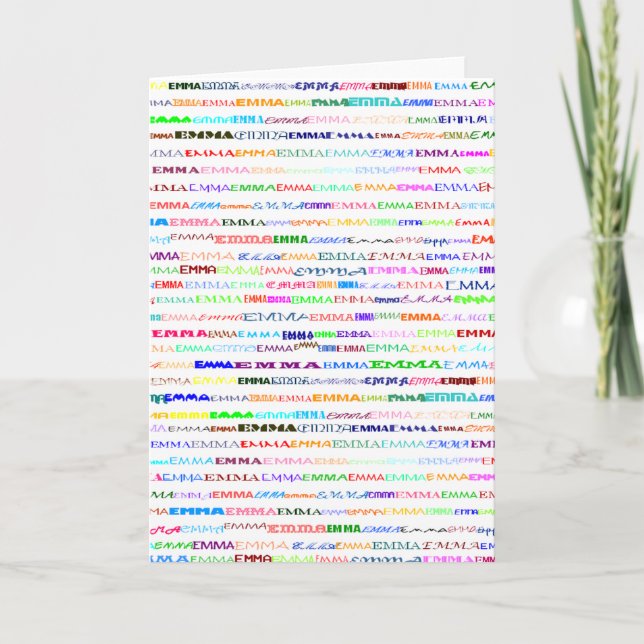 EMMA EMMA EMMA EMMA EMMA EMMA EMMA EMMA EMMA
EMMA EMMA EMMA EMMA EMMA EMMA EMMA EMMA EMMA
EMMA EMMA EMMA EMMA EMMA EMMA EMMA EMMA
EMMA EMMA EMMA EMMA EMMA EMMA EMMA EMMA
EMMA EMMA EMMA EMMA EMMA EMMA EMMA EMMA
EMMA EMMA EMMA EMMA EMMA EMMA EMMA EMMA
MMA EMMA EMMA EMMA EMMA EMMA EMMA EMMA
EMMA EMMA EMMA EMMA EMMA EMMA EMMA EMMA
MMA EMMA EMMA EMMA EMMA EMMA EMMA EMMA
EMMA EMMA EMMA EMMA EMMA EMMA EMMA EMMA
EMMA EMMA EMMA EMMA EMMA EMMA EMMA
EMMA EMMA EMMA EMMA EMMA EMMA EMMA
EMMA EMMA EMMA EMMA EMMA EMMA EMMA EMMA
EMMA EMMA EMMA EMMA EMMA EMMA EMMA EMMA
EMMA EMMA EMMA EMMA EMMA EMMA EMMA
EMMA EMMA EMMA EMMA EMMA EMMA EMMA
EMMA EMMA EMMA EMMA EMMA EMMA EMMA EMMA
EMMA EMMA EMMA EMMA EMMA EMMA
EMMA EMMA EMMA EMMA EMMA EMMA EMMA EMMA
EMMA EMMA EMMA EMMA EMMA EMMA EMMA
EMMA EMMA EMMA EMMA EMMA EMMA EMMA
EMMA EMMA EMMA EMMA EMMA EMMA EMMA
EMMA EMMA EMMA EMMA EMMA EMMA EMMA
EMMA EMMA EMMA EMMA EMMA EMMA EMMA
MA EMMA EMMA EMMA EMMA EMMA EMMA
EMMA EMMA EMMA EMMA EMMA EMMA EMMA
EMMA EMMA EMMA EMMA EMMA EMMA EMMA
MA EMMA EMMA EMMA EMMA EMMA EMMA
EMMA EMMA EMMA EMMA EMMA EMMA EMMA
EMMA EMMA EMMA EMMA EMMA EMMA EMMA